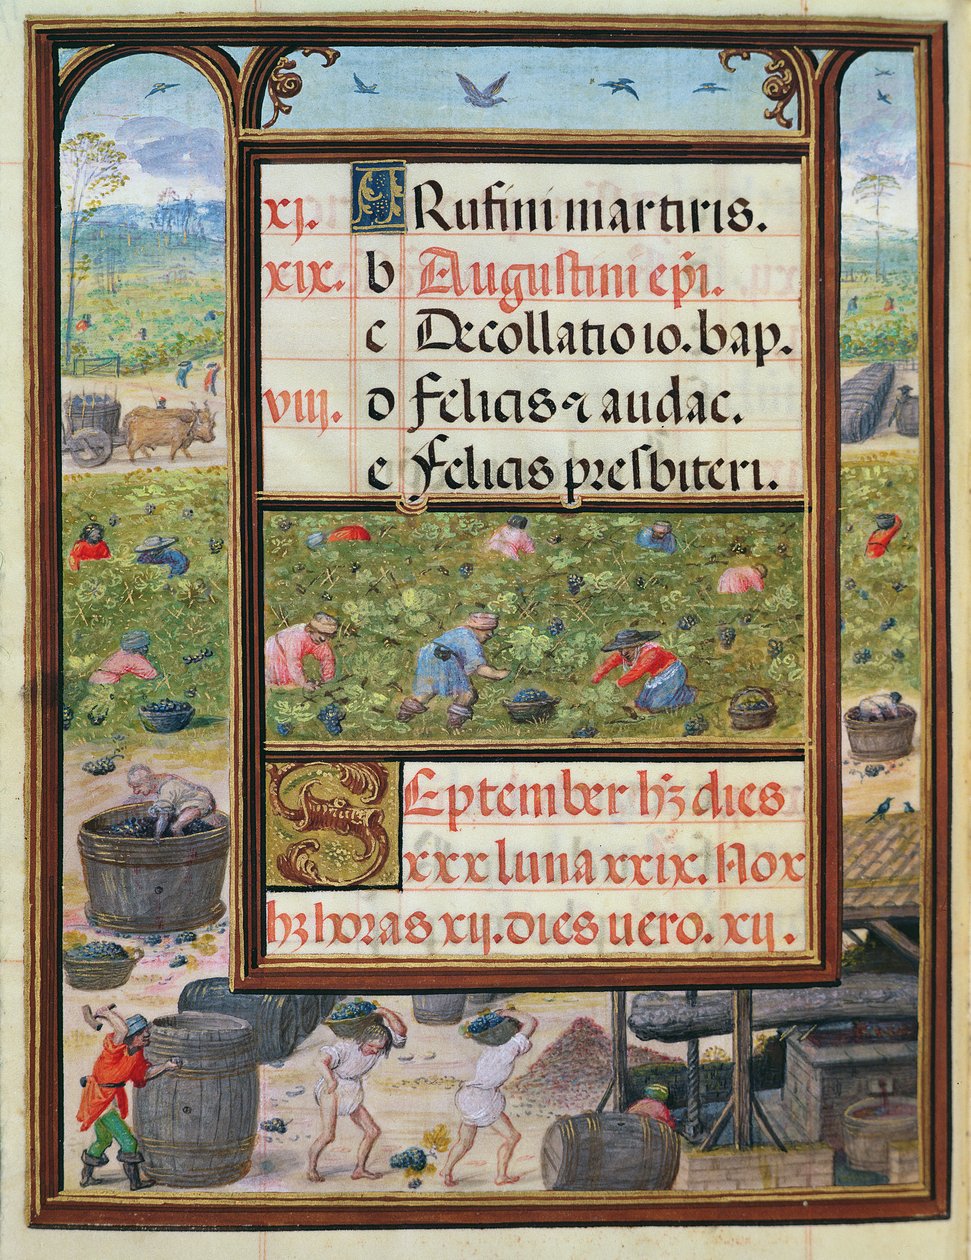 xj. A Rufini martiris.
xix. b Augustini ep̄i.
c Decollatio io. bap.
viij. d Felicis ⁊ audac.
e Felicis presbiteri.
September hꝫ dies
xxx luna xxix. Nox
hꝫ horas xij. dies uero. xij.